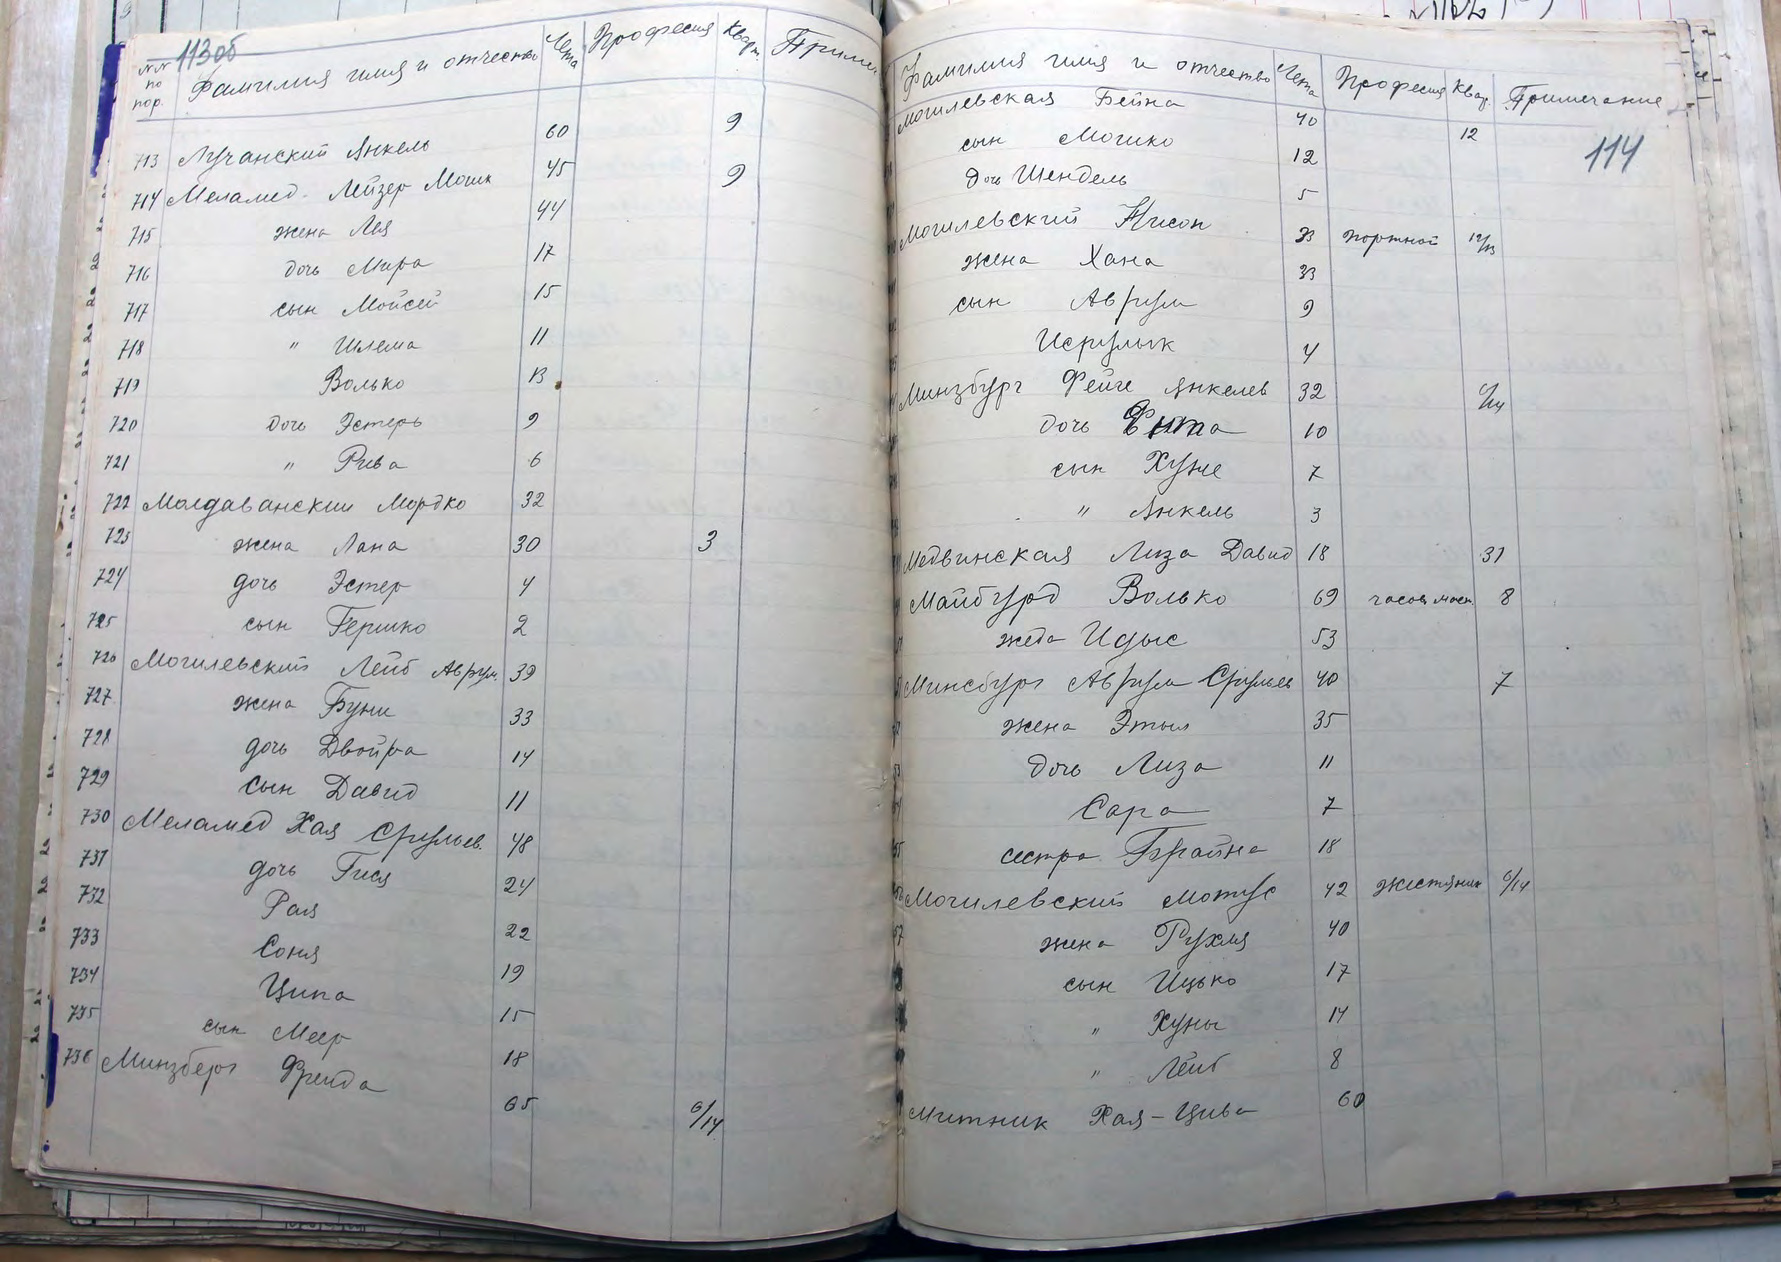 113об
№№ по пор. Фамилия имя и отчество Лета Професия Кварт. Приме
713 Лучанский Янкель 60 9
714 Меламед Лейзер Мошк 45 9
715 жена Лея 44
716 дочь Мира 17
717 сын Мойсей 15
718 " Шлема 11
719 Волько 13
720 дочь Эстерь 9
721 " Рива 6
722 Молдаванский Мордко 32
723 жена Хана 30 3
724 дочь Эстер 4
725 сын Гершко 2
726 Могилевский Лейб Аврум. 39
727 жена Буни 33
728 дочь Двойра 14
729 сын Давид 11
730 Меламед Хая Срульев. 48
731 дочь Гися 24
732 Рая 22
733 Соня 19
734 Ципа 15
735 сын Меер 18
736 Минзберг Фрейда 65 6/14
114
Фамилия имя и отчество Лета Професия Квар. Примечание
Могилевская Бейна 40 12
сын Мошко 12
дочь Шендель 5
Могилевский Нисон 33 портной 12/13
жена Хана 33
сын Аврум 9
Исрулык 4
Минзбург Фейге Янкелев 32 6/14
дочь 10
сын Хуне 7
" Янкель 3
Медвинская Лиза Давид 18 31
Майбурд Волько 69 часов. маст. 8
жена Идыс 53
Минсбург Аврум Срульев 40 7
жена Этыл 35
дочь Лиза 11
Сара 7
сестра Брайна 18
Могилевский Мотус 42 жестяник 6/14
жена Рухля 40
сын Ицько 17
" Хуны 14
" Лейб 8
Митник Хая-Цива 60